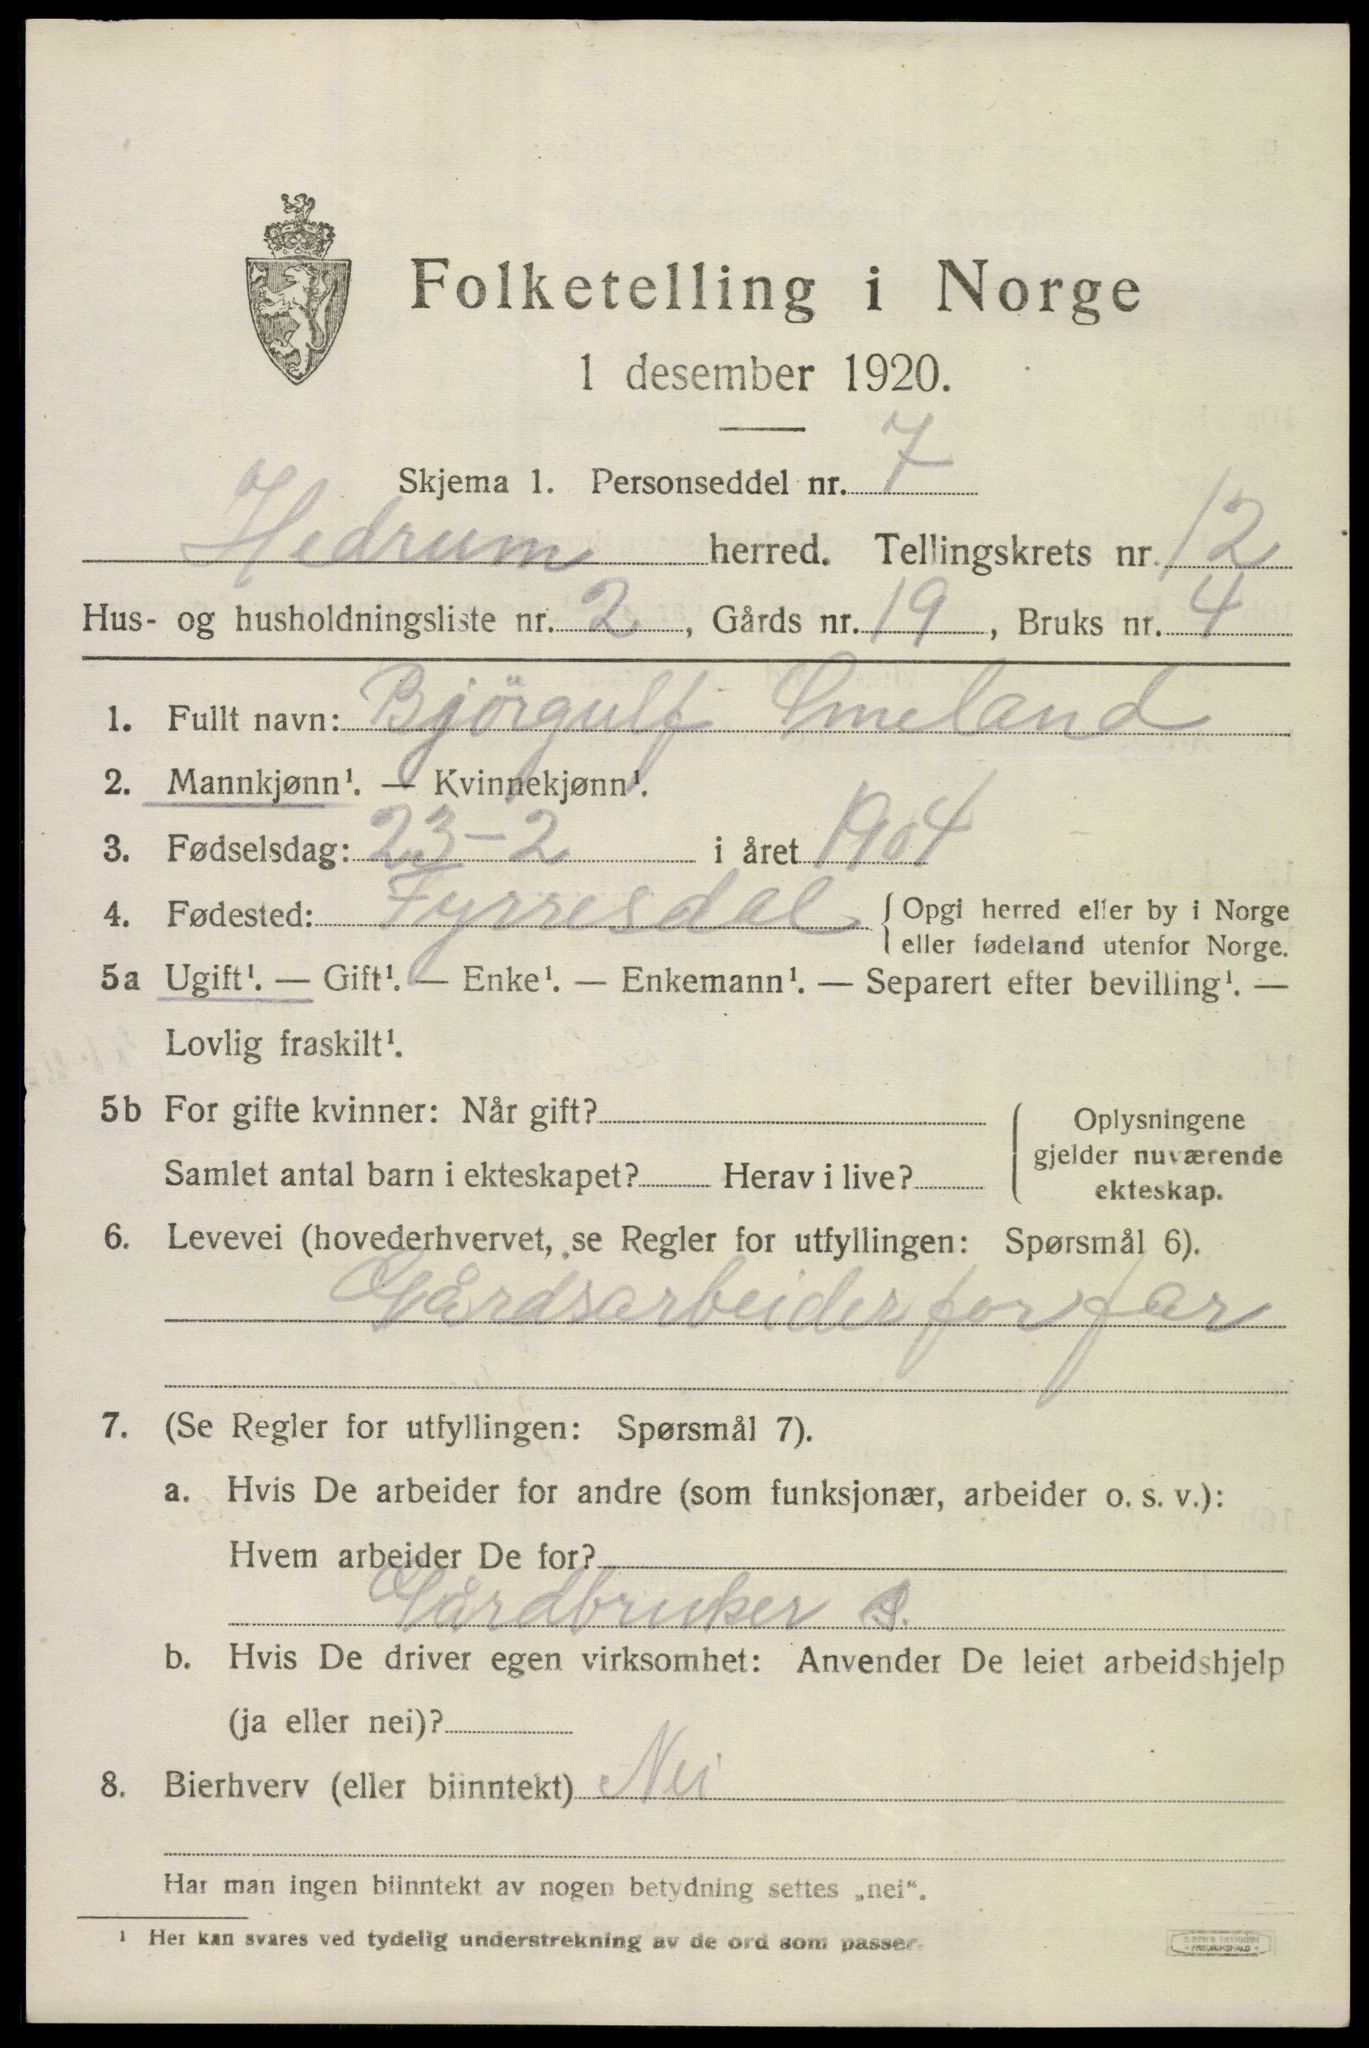 Folketelling i Norge
1 desember 1920.
Skjema 1. Personseddel nr. 7
Hedrum herred. Tellingskrets nr. 12
Hus- og husholdningsliste nr. 2, Gårds nr. 19, Bruks nr. 4
1. Fullt navn: Bjørgulf Smeland
2. Mannkjønn¹. — Kvinnekjønn¹.
3. Fødselsdag: 23-2 i året 1904
4. Fødested: Fyrresdal { Opgi herred eller by i Norge
eller fødeland utenfor Norge.
5a Ugift¹. — Gift¹. — Enke¹. — Enkemann¹. — Separert efter bevilling¹. —
Lovlig fraskilt¹.
5b For gifte kvinner: Når gift?
Samlet antal barn i ekteskapet? Herav i live?
Oplysningene
gjelder nuværende
ekteskap.
6. Levevei (hovederhvervet, se Regler for utfyllingen: Spørsmål 6).
Gårdsarbeider for far
7. (Se Regler for utfyllingen: Spørsmål 7).
a. Hvis De arbeider for andre (som funksjonær, arbeider o. s. v.):
Hvem arbeider De for?
Gårdbruker S.
b. Hvis De driver egen virksomhet: Anvender De leiet arbeidshjelp
(ja eller nei)?
8. Bierhverv (eller biinntekt) Nei
Har man ingen biinntekt av nogen betydning settes „nei“.
¹ Her kan svares ved tydelig understrekning av de ord som passer.